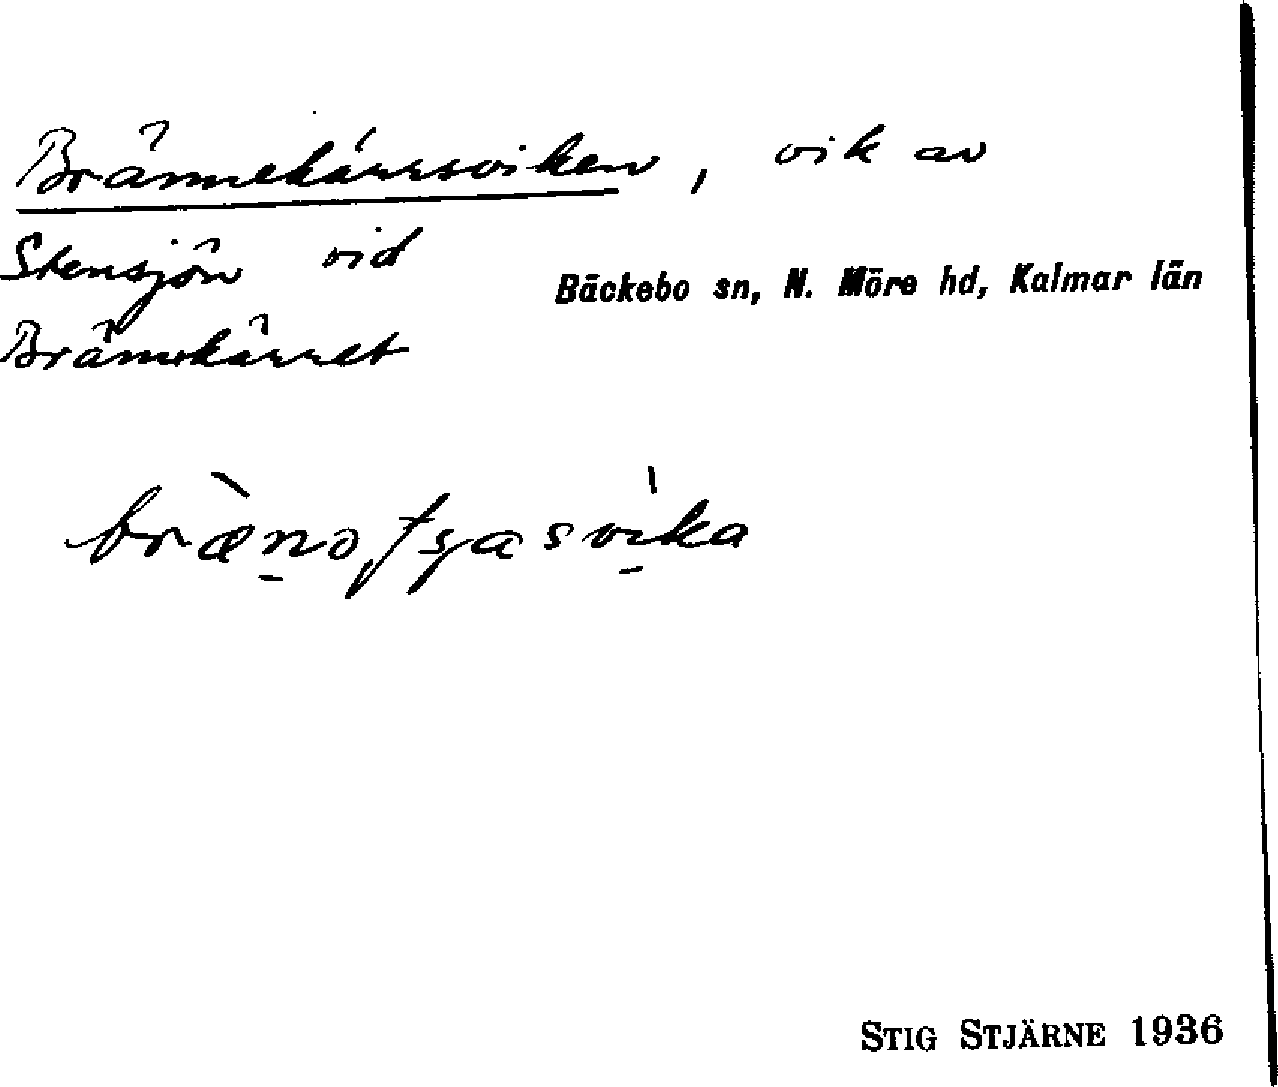 Brännekärrsviken, vik av
Stensjön vid
Bäckebo sn, N. Möre hd, Kalmar län
Brännekärret
STIG STJÄRNE 1936